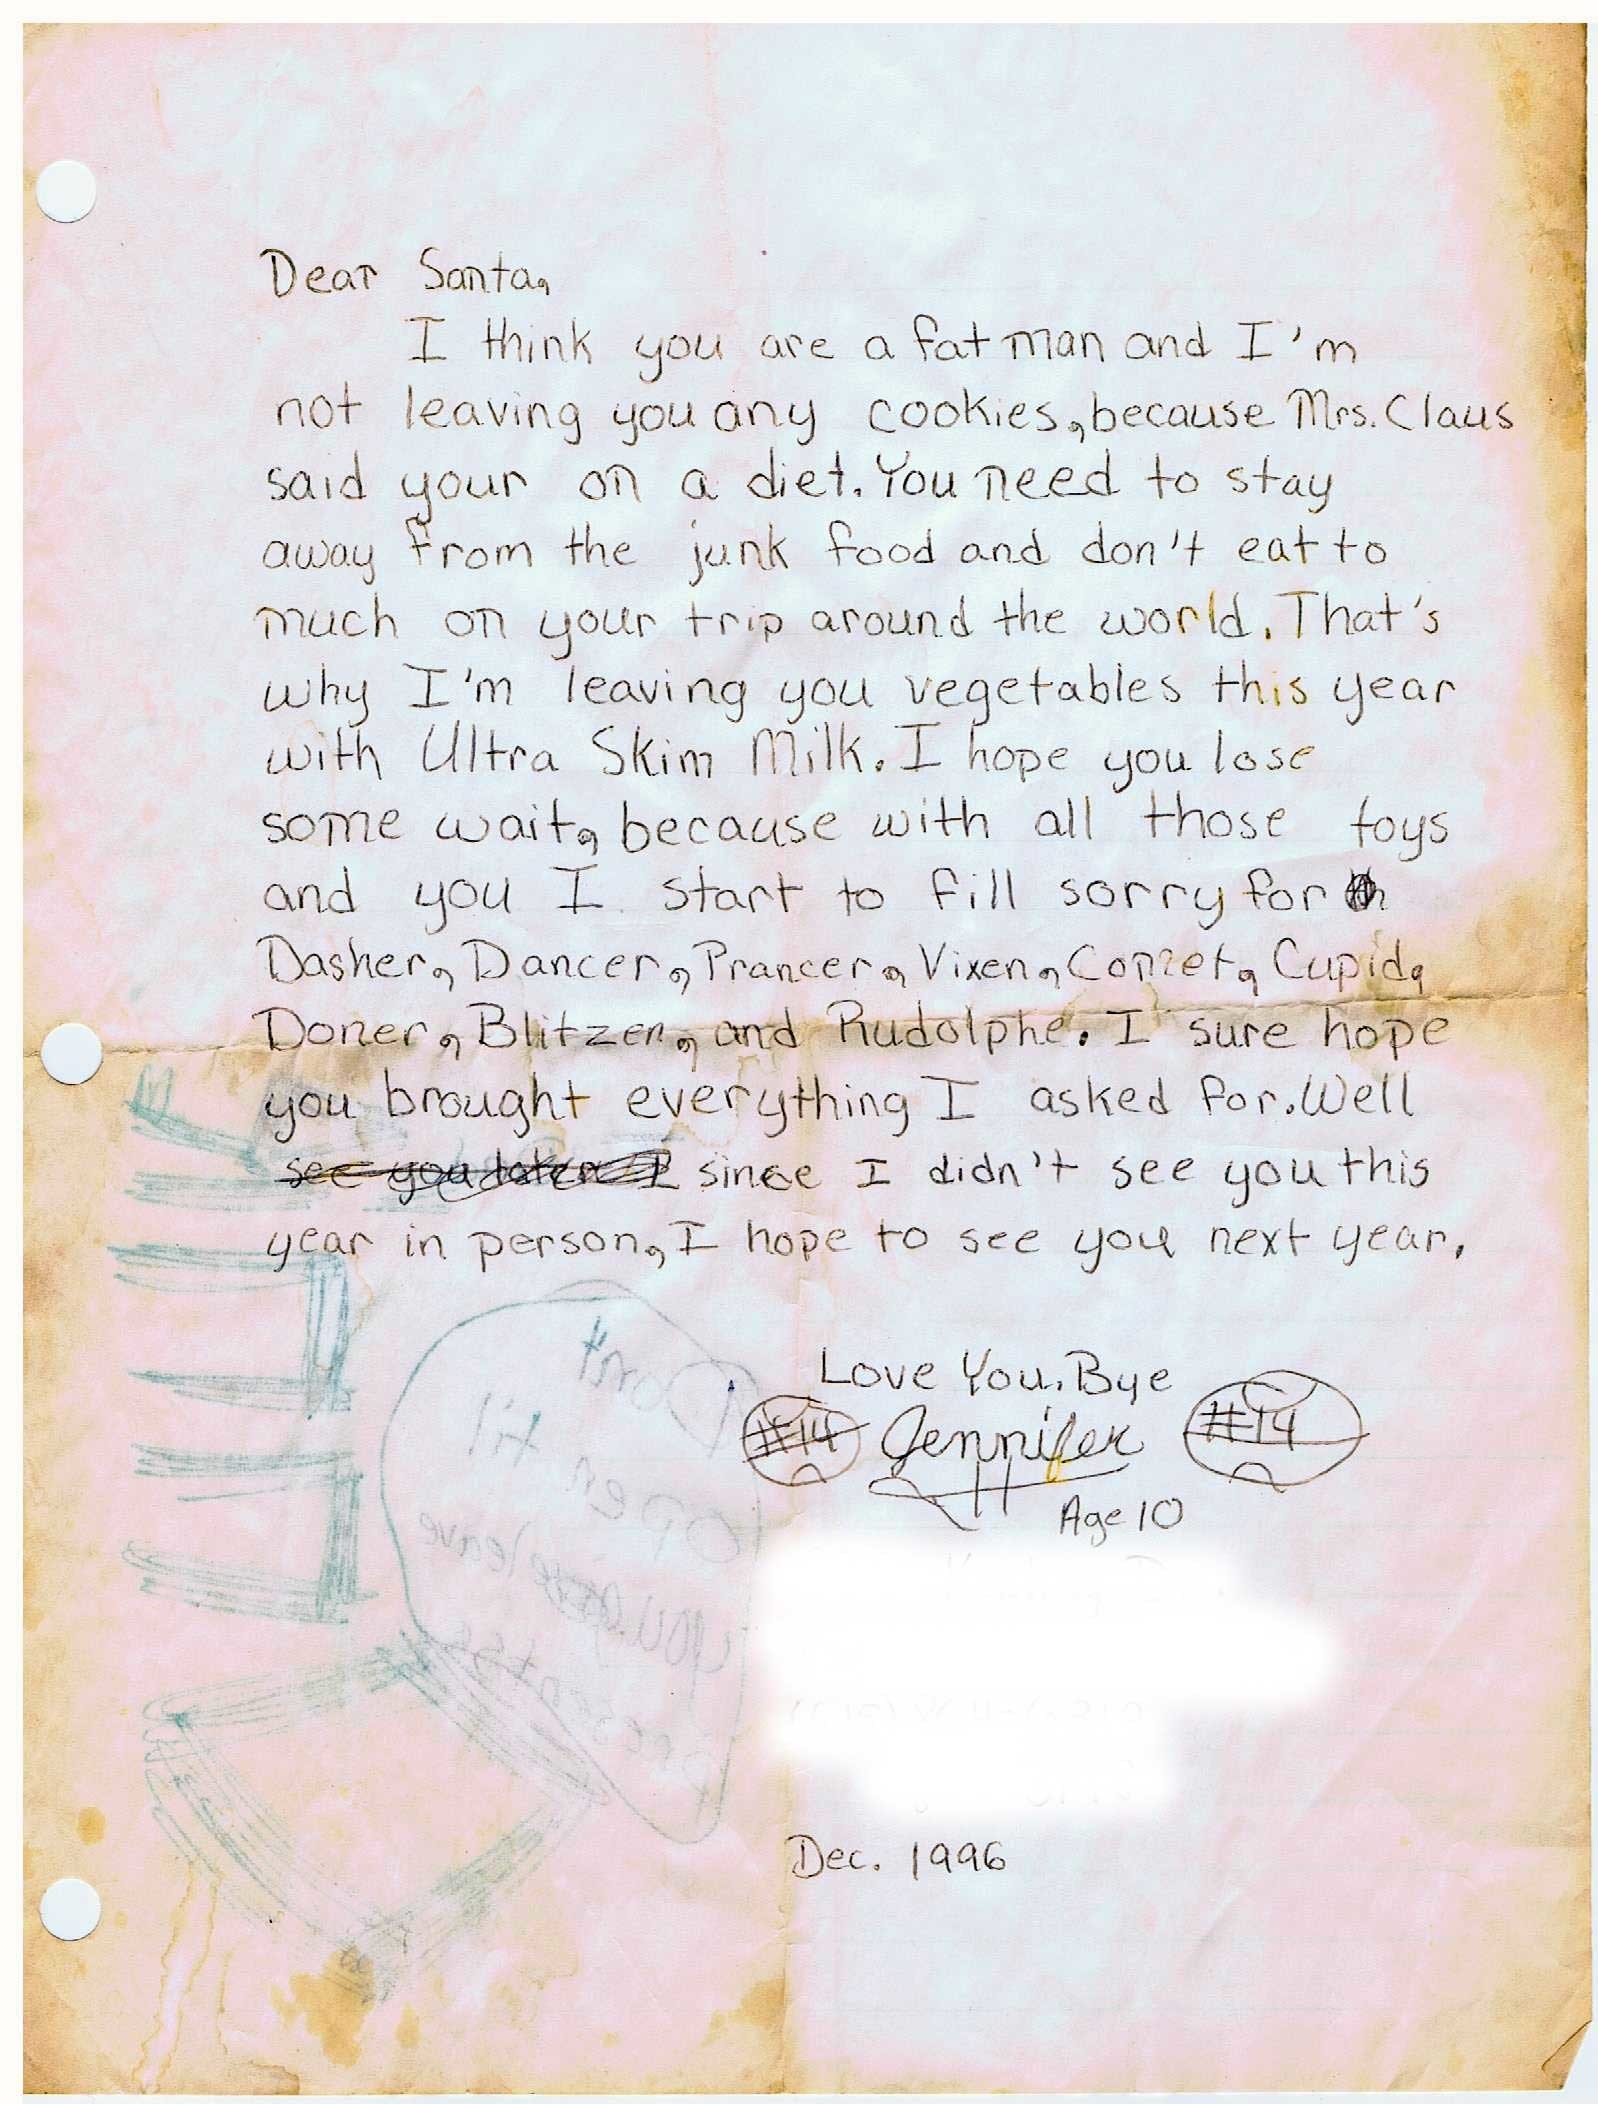 Dear Santa,
I think you are a fat man and I'm
not leaving you any cookies, because Mrs. Claus
said your on a diet. You need to stay
away from the junk food and don't eat to
much on your trip around the world. That's
why I'm leaving you vegetables this year
with Ultra Skim Milk. I hope you lose
some wait, because with all those toys
and you I start to fill sorry for
Dasher, Dancer, Prancer, Vixen, Comet, Cupid,
Doner, Blitzen, and Rudolphe. I sure hope
you brought everything I asked for. Well
see you later I since I didn't see you this
year in person, I hope to see you next year.
Love You, Bye
#14 Jennifer #14
Age 10
Don't
open til
you leave
presents
Dec. 1996